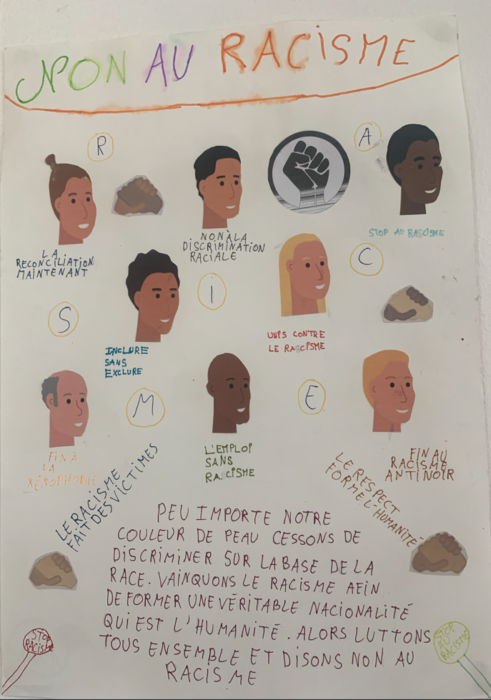 NON AU RACISME
R
A
LA
RECONCILIATION
MAINTENANT
NON À LA
DISCRIMINATION
RACIALE
STOP AU RACISME
S
I
C
INCLURE
SANS
EXCLURE
UNIS CONTRE
LE RACISME
M
E
FIN À
LA
XÉNOPHOBIE
L'EMPLOI
SANS
RACISME
FIN AU
RACISME
ANTI NOIR
LE RACISME
FAIT DES VICTIMES
LE RESPECT
FORME L'HUMANITÉ
PEU IMPORTE NOTRE
COULEUR DE PEAU CESSONS DE
DISCRIMINER SUR LA BASE DE LA
RACE. VAINQUONS LE RACISME AFIN
DE FORMER UNE VÉRITABLE NACIONALITÉ
QUI EST L'HUMANITÉ. ALORS LUTTONS
TOUS ENSEMBLE ET DISONS NON AU
RACISME
STOP
RACISME
STOP
RACISME